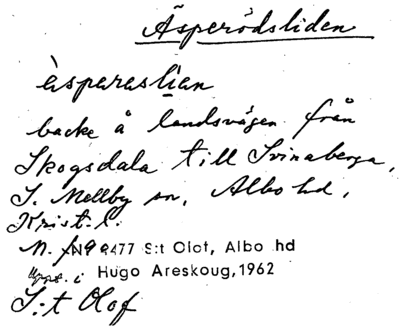 Äsperödsliden
àsparaslian
backe å landsvägen från
Skogsdala till Svinaberga,
S. Mellby sn, Albo hd,
Krist. l.
N 9477 S:t Olof, Albo hd
Hugo Areskoug, 1962
S:t Olof